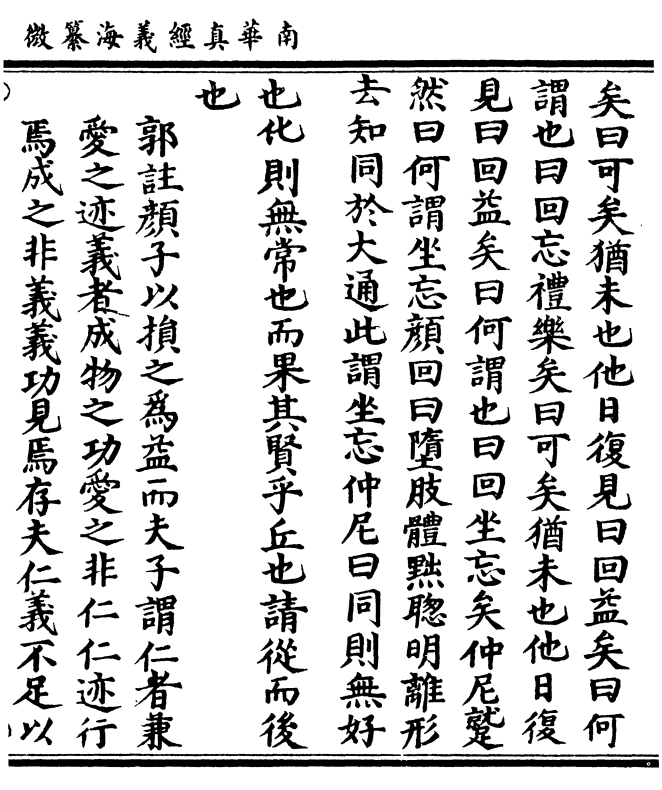 南華真經義海纂微
矣曰可矣猶未也他日復見曰回益矣曰何
謂也曰回忘禮樂矣曰可矣猶未也他日復
見曰回益矣曰何謂也曰回坐忘矣仲尼蹵
然曰何謂坐忘顏回曰墮肢體黜聰明離形
去知同於大通此謂坐忘仲尼曰同則無好
也化則無常也而果其賢乎丘也請從而後
也
郭註顏子以損之為益而夫子謂仁者兼
愛之迹義者成物之功愛之非仁仁迹行
焉成之非義義功見焉存夫仁義不足以